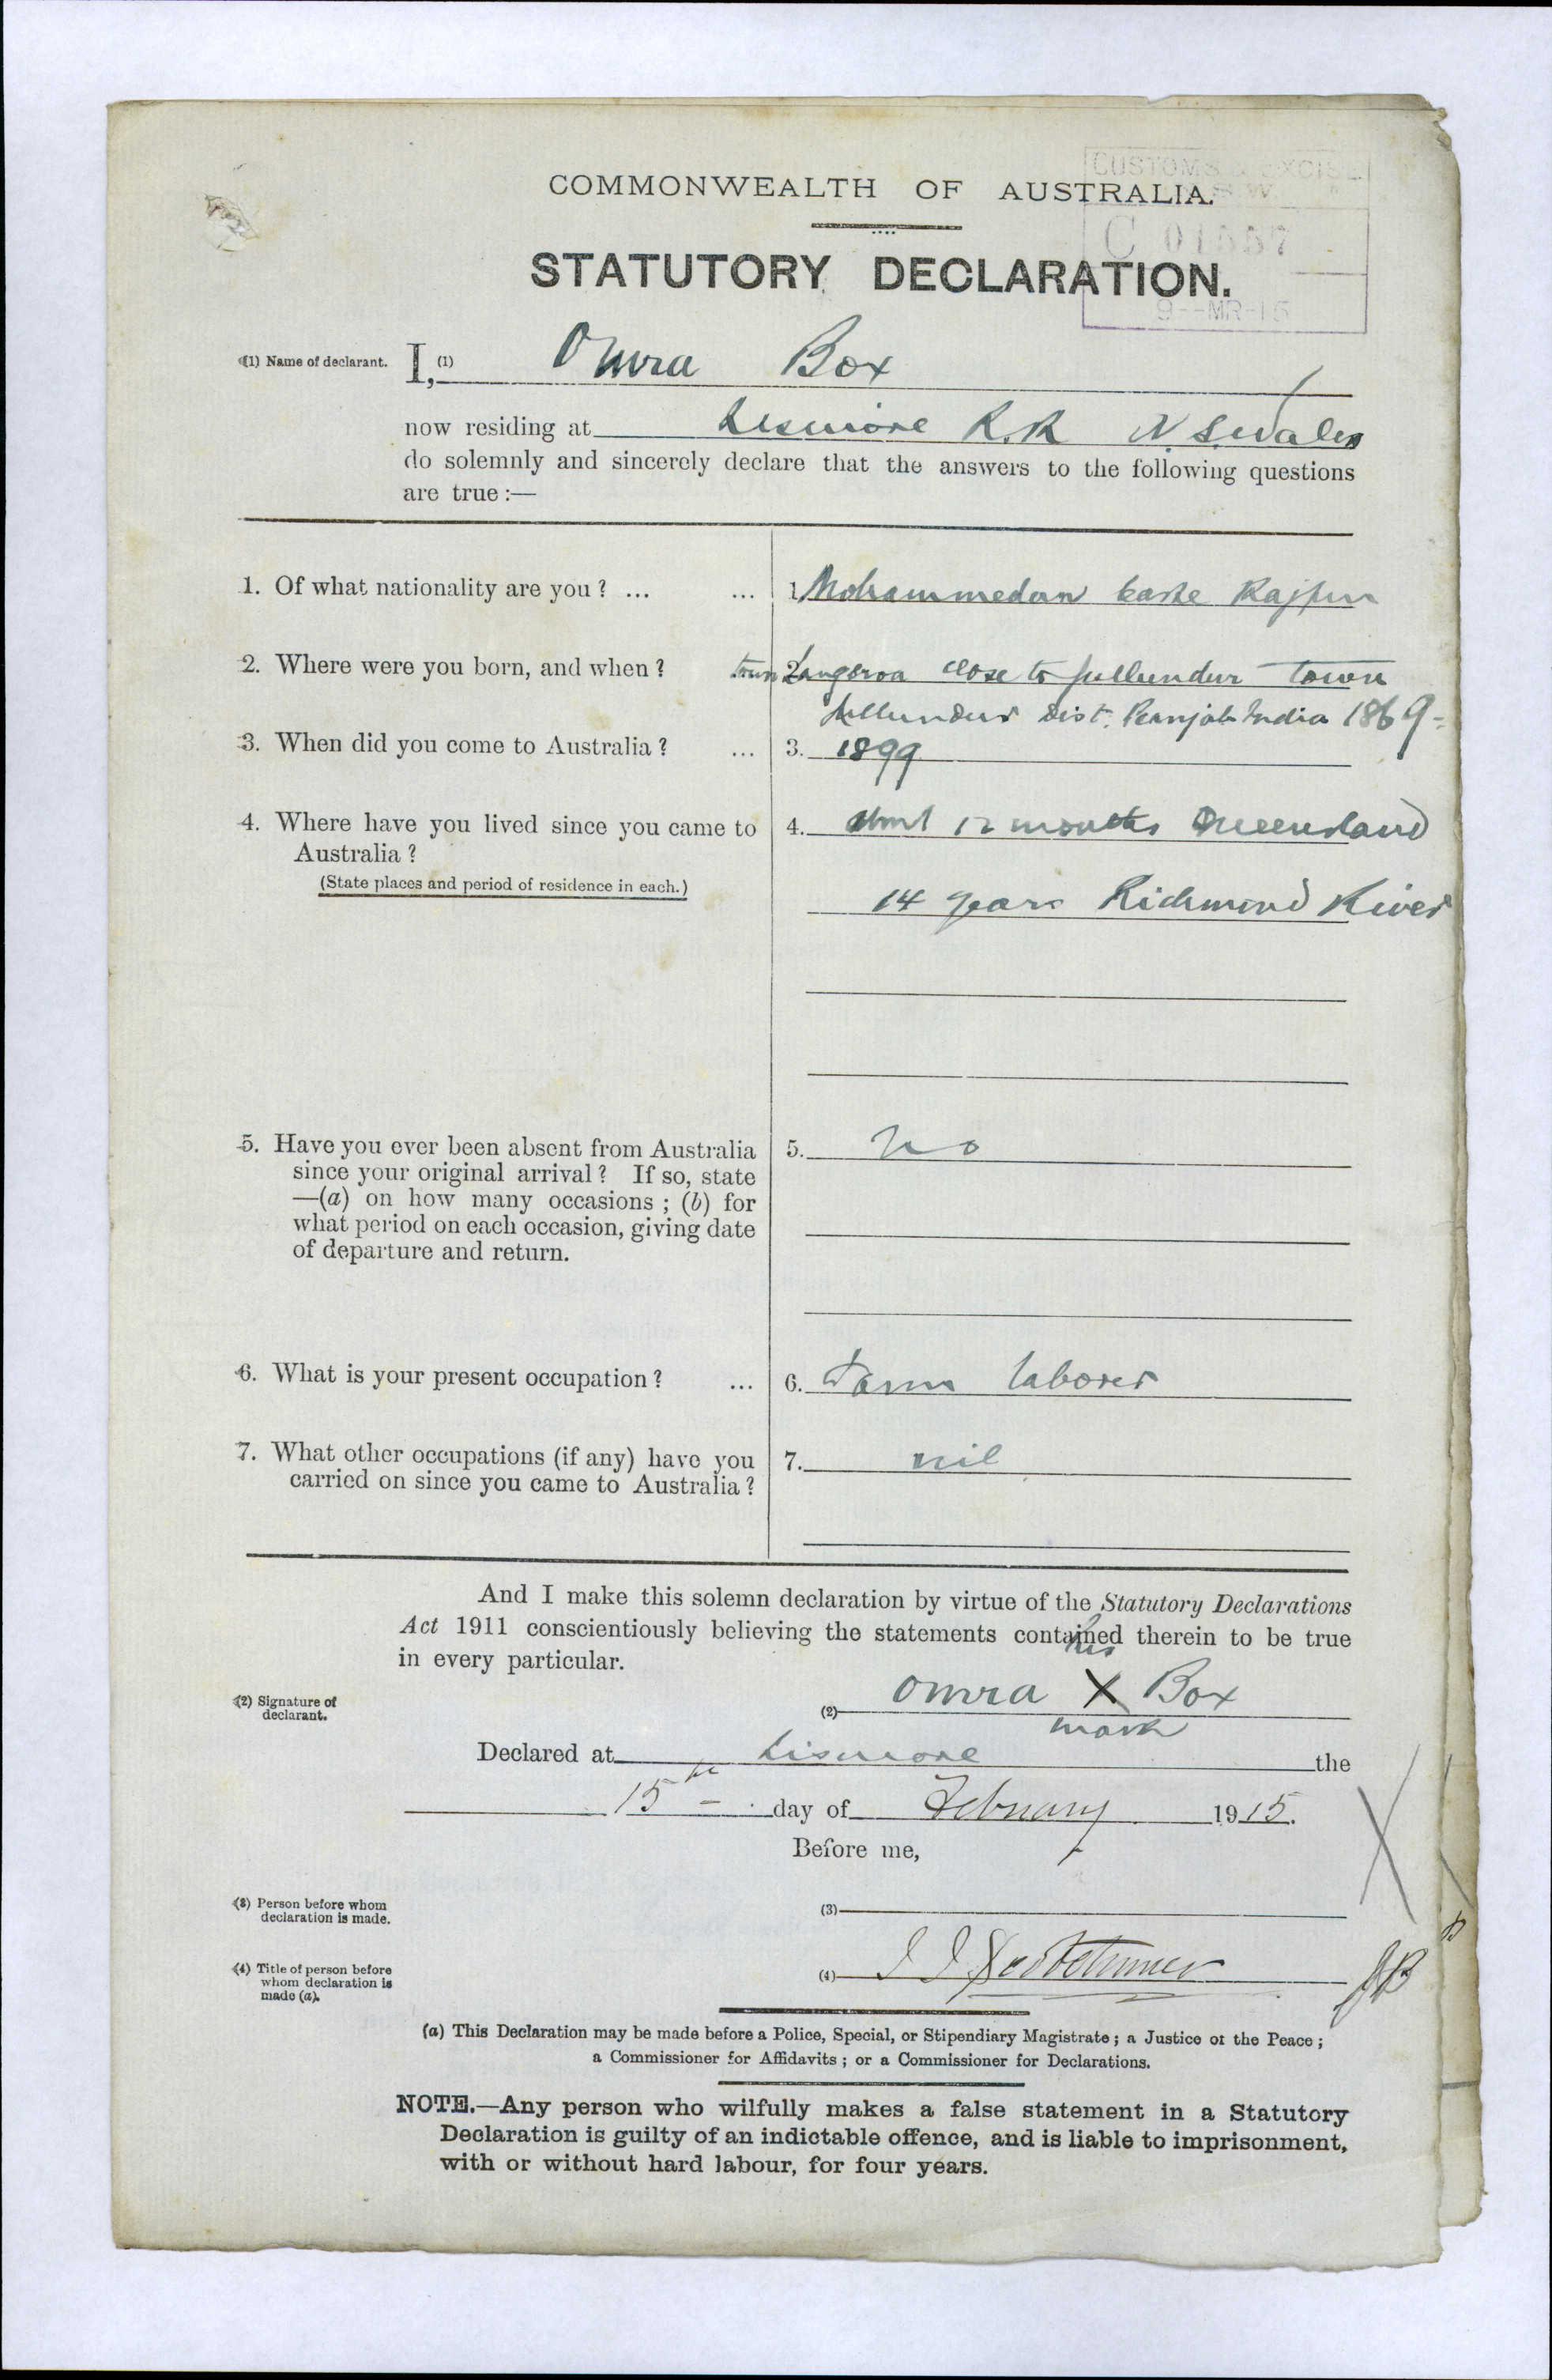 CUSTOMS & EXCISE
COMMONWEALTH OF AUSTRALIA.
C 01557
STATUTORY DECLARATION.
9--MR-15
(1) Name of declarant. I, (1) Omra Box
now residing at Lismore R.R N.S.Wales
do solemnly and sincerely declare that the answers to the following questions
are true:—
1. Of what nationality are you? ... ... 1. Mohammedan caste Rajput
2. Where were you born, and when? town 2. close to Jullundur town
Jullundur Dist. Punjab India 1869
3. When did you come to Australia? ... 3. 1899
4. Where have you lived since you came to 4. about 12 months Queensland
Australia?
(State places and period of residence in each.)
14 years Richmond River
5. Have you ever been absent from Australia 5. no
since your original arrival? If so, state
—(a) on how many occasions; (b) for
what period on each occasion, giving date
of departure and return.
6. What is your present occupation? ... 6. Farm laborer
7. What other occupations (if any) have you 7. nil
carried on since you came to Australia?
And I make this solemn declaration by virtue of the Statutory Declarations
Act 1911 conscientiously believing the statements contained therein to be true
in every particular.
his
(2) Signature of declarant. (2) Omra X Box
mark
Declared at Lismore the
15th day of February 1915.
Before me,
(3) Person before whom declaration is made. (3)
(4) Title of person before whom declaration is made (a). (4) JP
(a) This Declaration may be made before a Police, Special, or Stipendiary Magistrate; a Justice of the Peace;
a Commissioner for Affidavits; or a Commissioner for Declarations.
NOTE.—Any person who wilfully makes a false statement in a Statutory
Declaration is guilty of an indictable offence, and is liable to imprisonment,
with or without hard labour, for four years.